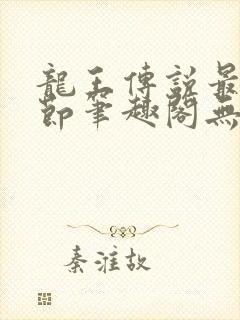 龍王傳說最
節筆趣閣無
秦淮故